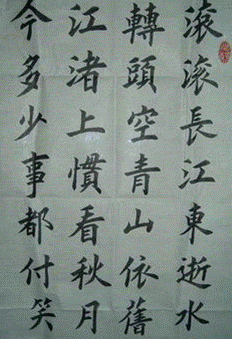 滚滚長江東逝水
轉頭空青山依舊
江渚上慣看秋月
今多少事都付笑